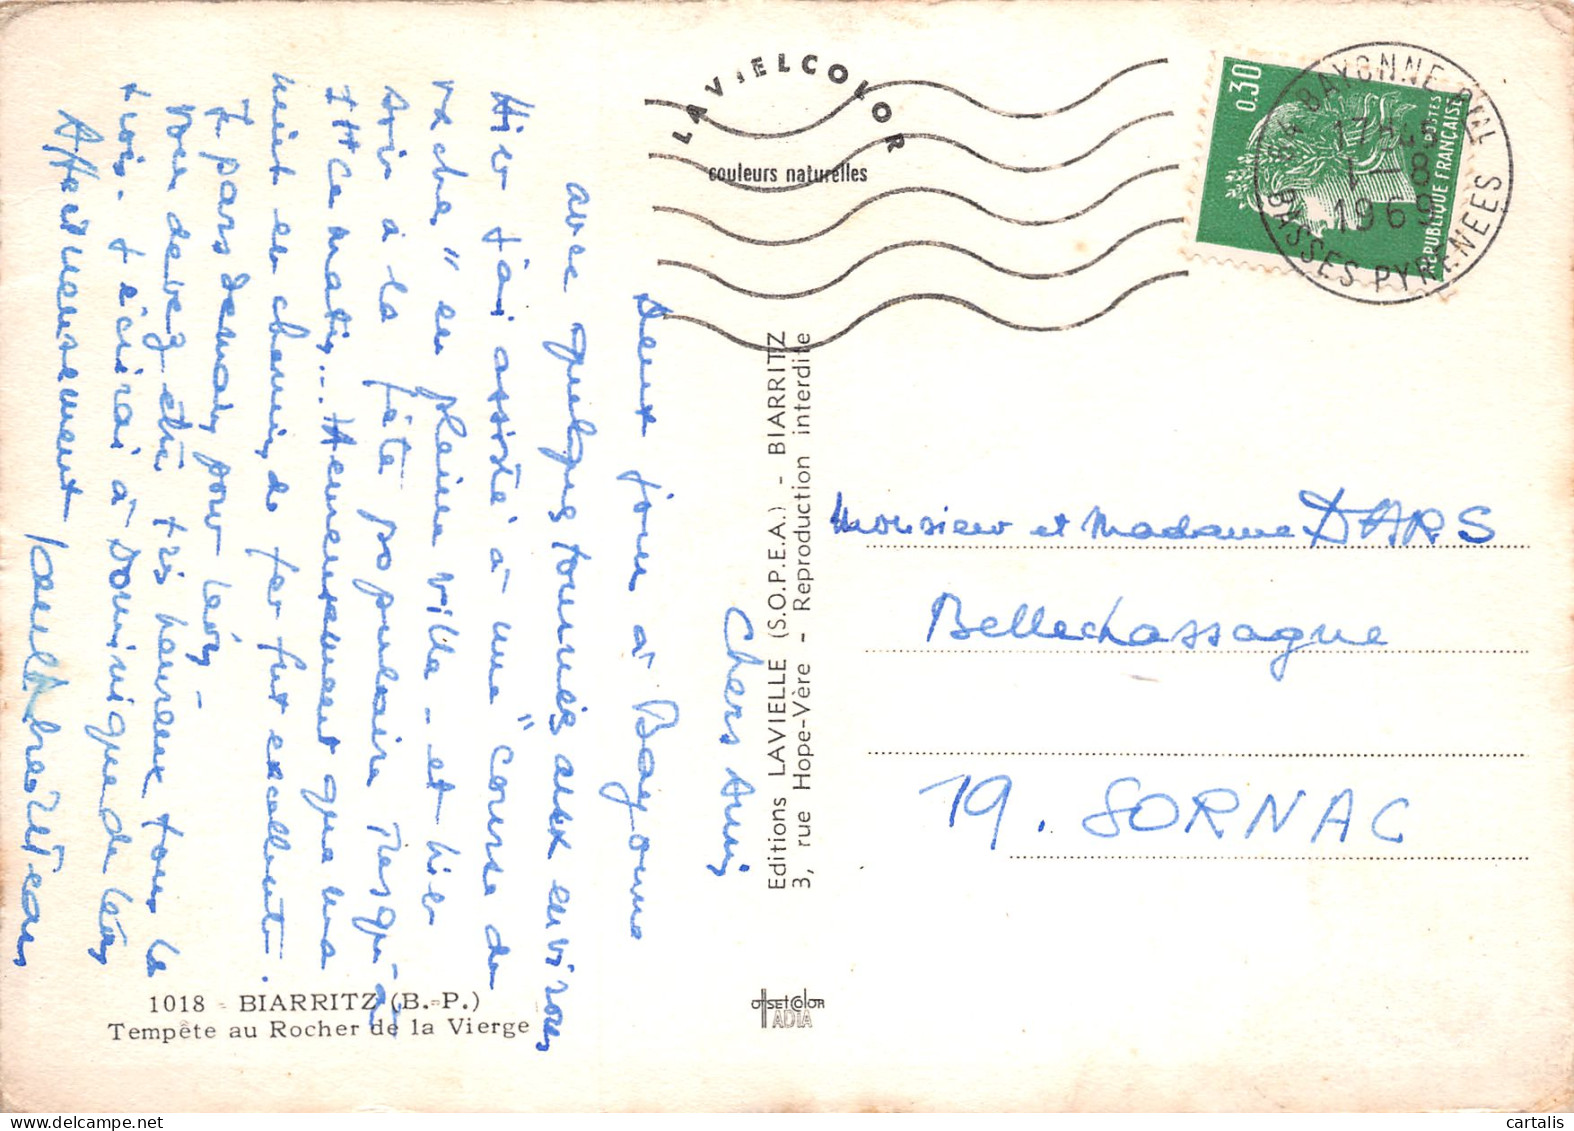 LAVIELCOLOR
couleurs naturelles
0.30
POSTES
REPUBLIQUE FRANÇAISE
64 BAYONNE PPAL
17H45
1-8
1969
BASSES PYRENEES
Chers Amis
deux jours à Bayonne
avec quelques tournées aux environs
Hier j'ai assisté à une "course de
vaches" en pleine ville - et hier
soir à la fête populaire Jusqu'à
1H ce matin... Heureusement que ma
nuit en chemin de fer fut excellente.
Je pars demain pour Léon -
Vous devez être très heureux tous les
trois. J'écrirai à Dominique de Léon
Affectueusement
Monsieur et Madame DARS
Bellechassagne
19. SORNAC
Editions LAVIELLE (S.O.P.E.A.) - BIARRITZ
3, rue Hope-Vère - Reproduction interdite
OffSET COlOR
IADIA
1018 - BIARRITZ (B.-P.)
Tempête au Rocher de la Vierge
cartalis